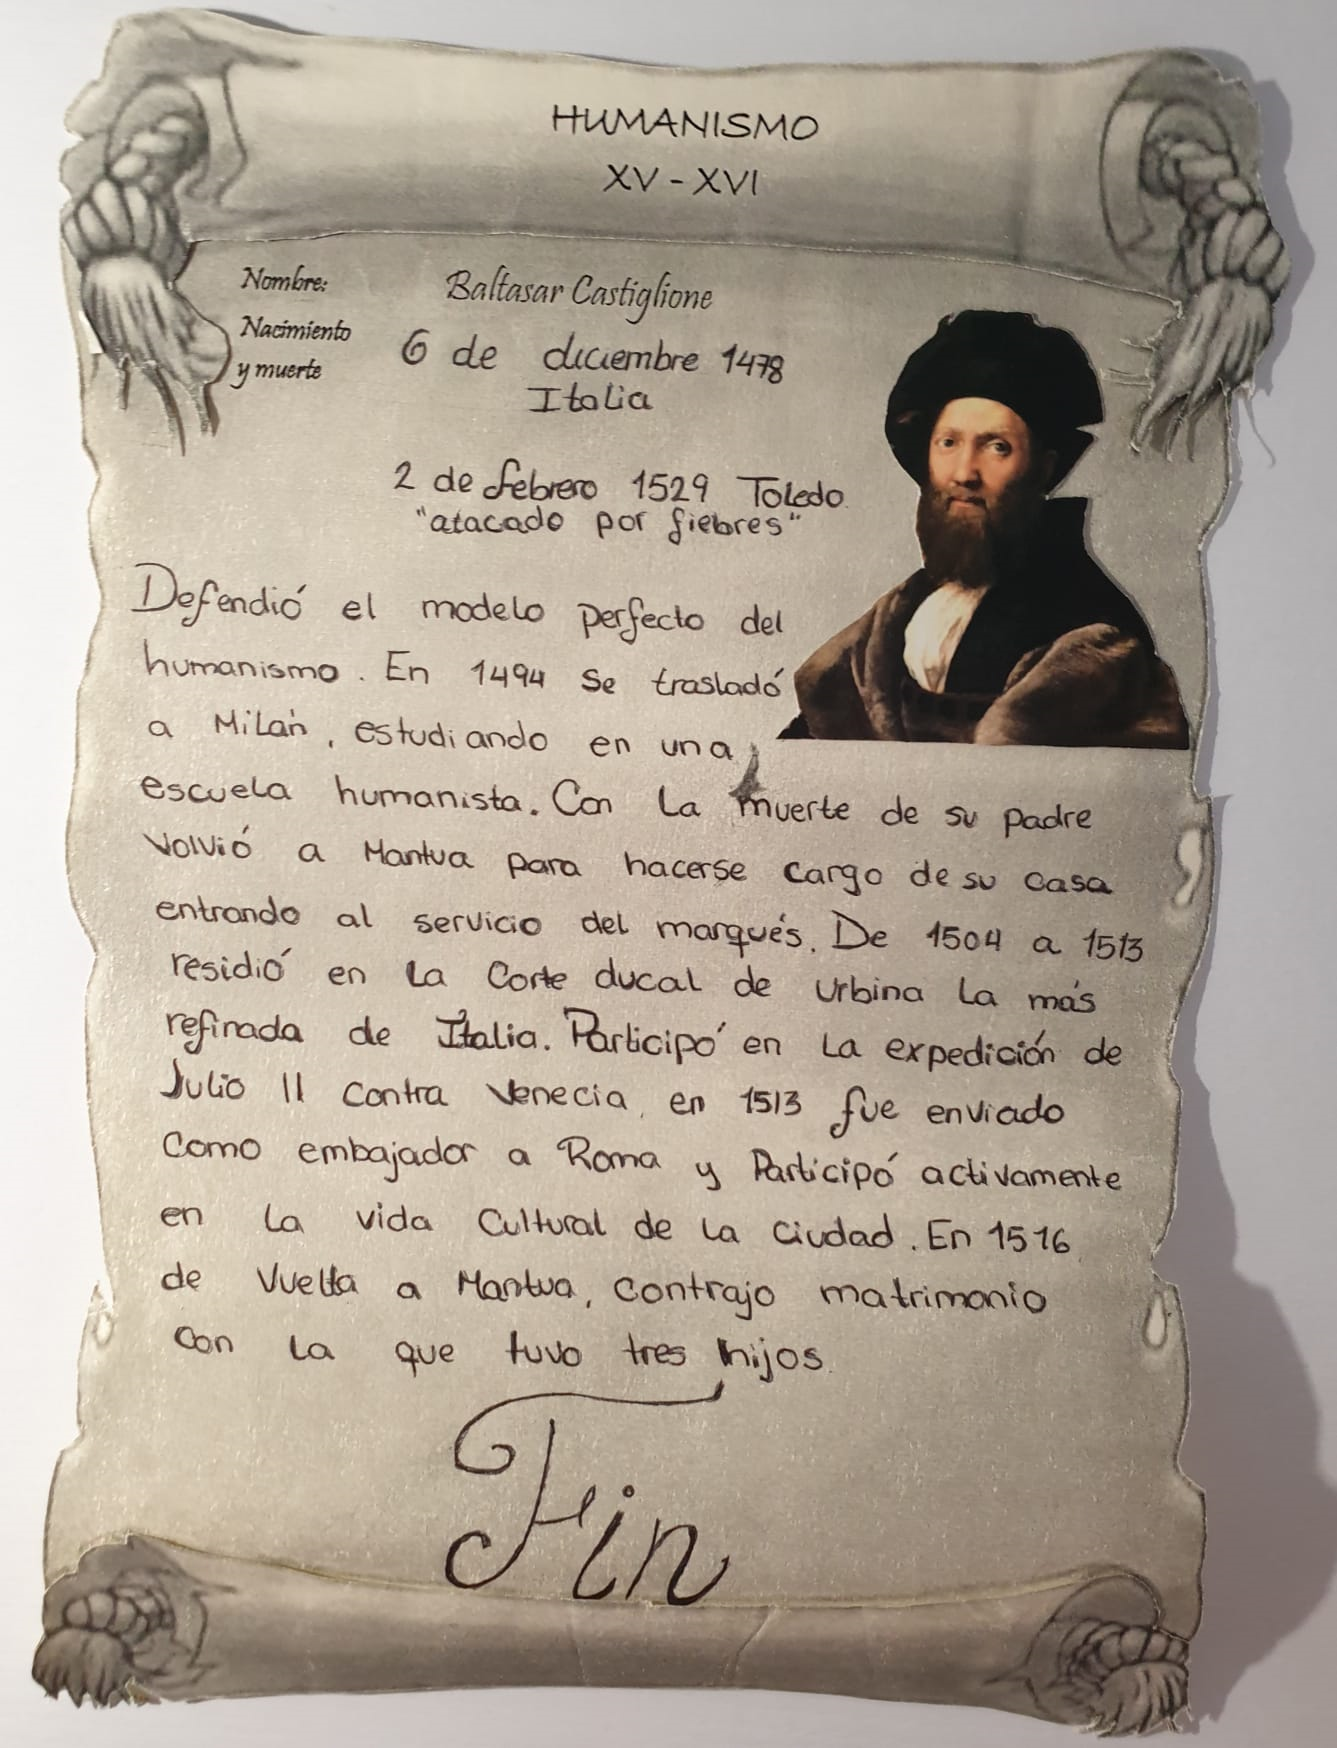 HUMANISMO
XV - XVI
Nombre: Baltasar Castiglione
Nacimiento y muerte
6 de diciembre 1478
Italia
2 de febrero 1529 Toledo
"atacado por fiebres"
Defendió el modelo perfecto del
humanismo. En 1494 se trasladó
a Milán, estudiando en una
escuela humanista. Con la muerte de su padre
volvió a Mantua para hacerse cargo de su casa
entrando al servicio del marqués. De 1504 a 1513
residió en la Corte ducal de Urbina la más
refinada de Italia. Participó en la expedición de
Julio II contra Venecia, en 1513 fue enviado
como embajador a Roma y Participó activamente
en la vida Cultural de la Ciudad. En 1516
de Vuelta a Mantua, contrajo matrimonio
con la que tuvo tres hijos.
Fin